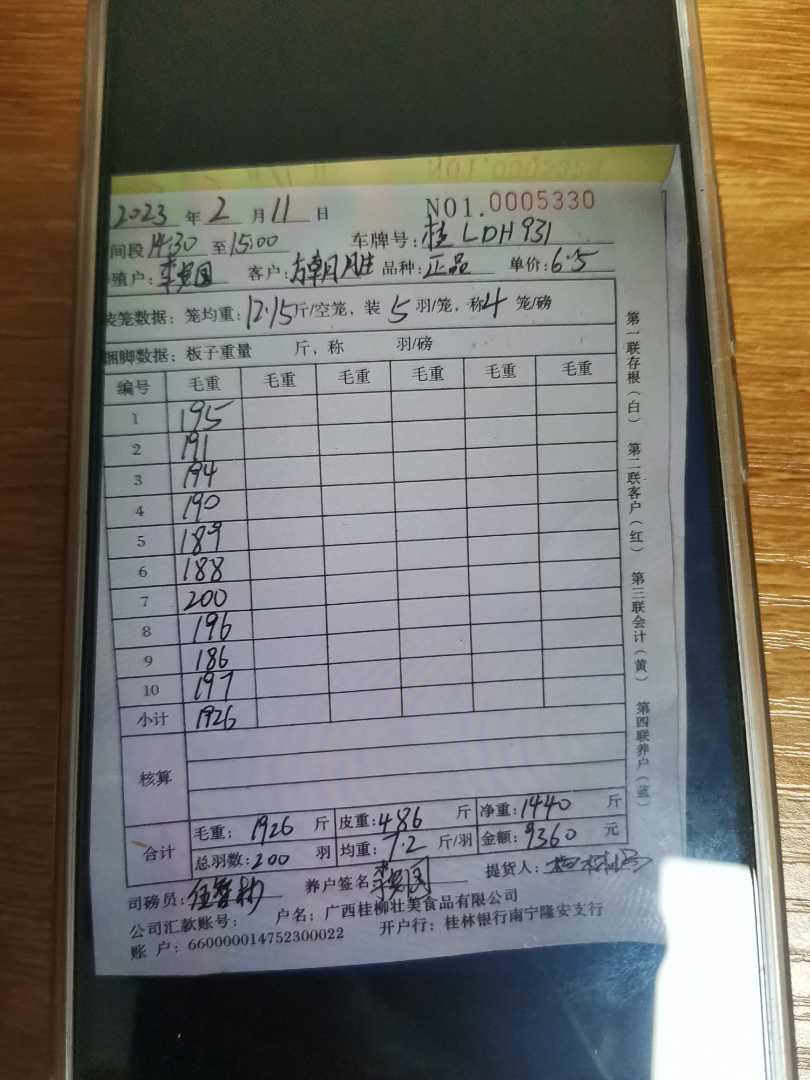 2023 年 2 月 11 日 NO1.0005330
间段 14:30 至 15:00 车牌号: 桂 LDH931
殖户: 客户: 方朝胜 品种: 正品 单价: 6.5
装笼数据: 笼均重: 12.15 斤/空笼, 装 5 羽/笼, 称 4 笼/磅
捆脚数据: 板子重量 斤, 称 羽/磅
编号 毛重 毛重 毛重 毛重 毛重 毛重
1 195
2 191
3 194
4 190
5 189
6 188
7 200
8 196
9 186
10 197
小计 1926
核算
合计 毛重: 1926 斤 皮重: 486 斤 净重: 1440 斤
总羽数: 200 羽 均重: 7.2 斤/羽 金额: 9360 元
司磅员: 养户签名 提货人:
公司汇款账号: 户名: 广西桂柳壮美食品有限公司
账 户: 660000014752300022 开户行: 桂林银行南宁隆安支行
第一联存根(白) 第二联客户(红) 第三联会计(黄) 第四联养户(蓝)